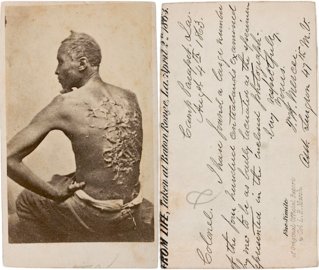 FROM LIFE, Taken at Baton Rouge, La. April 2d, 1863
Camp Parapet, La.
Aug 4th 1863.
Colonel.
I have found a large number
of the four hundred contrabands examined
by me to be as badly lacerated as the specimen
represented in the enclosed photograph.
Very respectfully
Yours.
Asst Surgeon 47th M.V.
Fac-Simile.